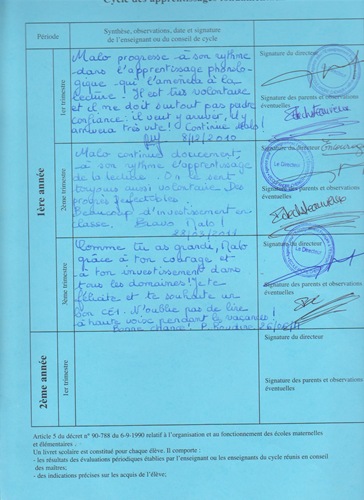 Cycle des apprentissages fondamentaux
Période
Synthèse, observations, date et signature
de l'enseignant ou du conseil de cycle
1ère année
1er trimestre
Malo progresse à son rythme
dans l'apprentissage phonolo-
gique qui l'amenda à la
lecture. Il est très volontaire
et il ne doit surtout pas perdre
confiance: il veut y arriver, il y
arrivera très vite! Continue Malo!
8/12/2010
Signature du directeur
Signature des parents et observations
éventuelles
2ème trimestre
Malo continue doucement
à son rythme l'apprentissage
de la lecture. On le sent
toujours aussi volontaire. Des
progrès perfectibles.
Beaucoup d'investissement en
classe. Bravo Malo!
Le Directeur
Signature des parents et observations
éventuelles
3ème trimestre
Comme tu as grandi, Malo
grâce à ton courage et
à ton investissement dans
tous les domaines! Je te
félicite et te souhaite un
bon CE1. N'oublie pas de lire
à haute voix pendant les vacances!
Bonne chance!
Signature du directeur
Le Directeur
Signature des parents et observations
éventuelles
2ème année
1er trimestre
Signature du directeur
Signature des parents et observations
éventuelles
Article 5 du décret n° 90-788 du 6-9-1990 relatif à l'organisation et au fonctionnement des écoles maternelles
et élémentaires .
Un livret scolaire est constitué pour chaque élève. Il comporte :
- les résultats des évaluations périodiques établies par l'enseignant ou les enseignants du cycle réunis en conseil
des maîtres;
- des indications précises sur les acquis de l'élève;